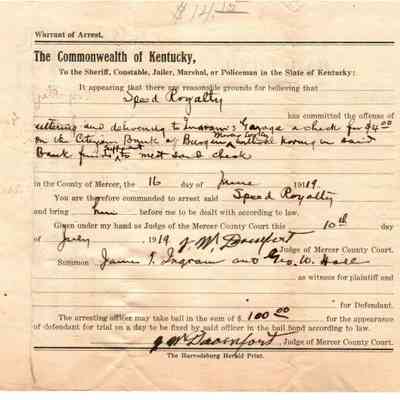 $ 14.15
Warrant of Arrest.
The Commonwealth of Kentucky,
To the Sheriff, Constable, Jailer, Marshal, or Policeman in the State of Kentucky:
It appearing that there are reasonable grounds for believing that
Speed Royalty
has committed the offense of
uttering and delivering to Ingram's Garage a check for $4.00
on the Citizens Bank of Burgin, without having in said
Bank funds sufficient to meet said check
in the County of Mercer, the 16 day of June 1919.
You are therefore commanded to arrest said Speed Royalty
and bring him before me to be dealt with according to law.
Given under my hand as Judge of the Mercer County Court this 10th day
of July 1919 J W Davenport
Judge of Mercer County Court.
Summon James T. Ingram and Geo. W. Hall
as witness for plaintiff and
for Defendant.
The arresting officer may take bail in the sum of $ 100 00 for the appearance
of defendant for trial on a day to be fixed by said officer in the bail bond according to law.
J W Davenport, Judge of Mercer County Court.
The Harrodsburg Herald Print.